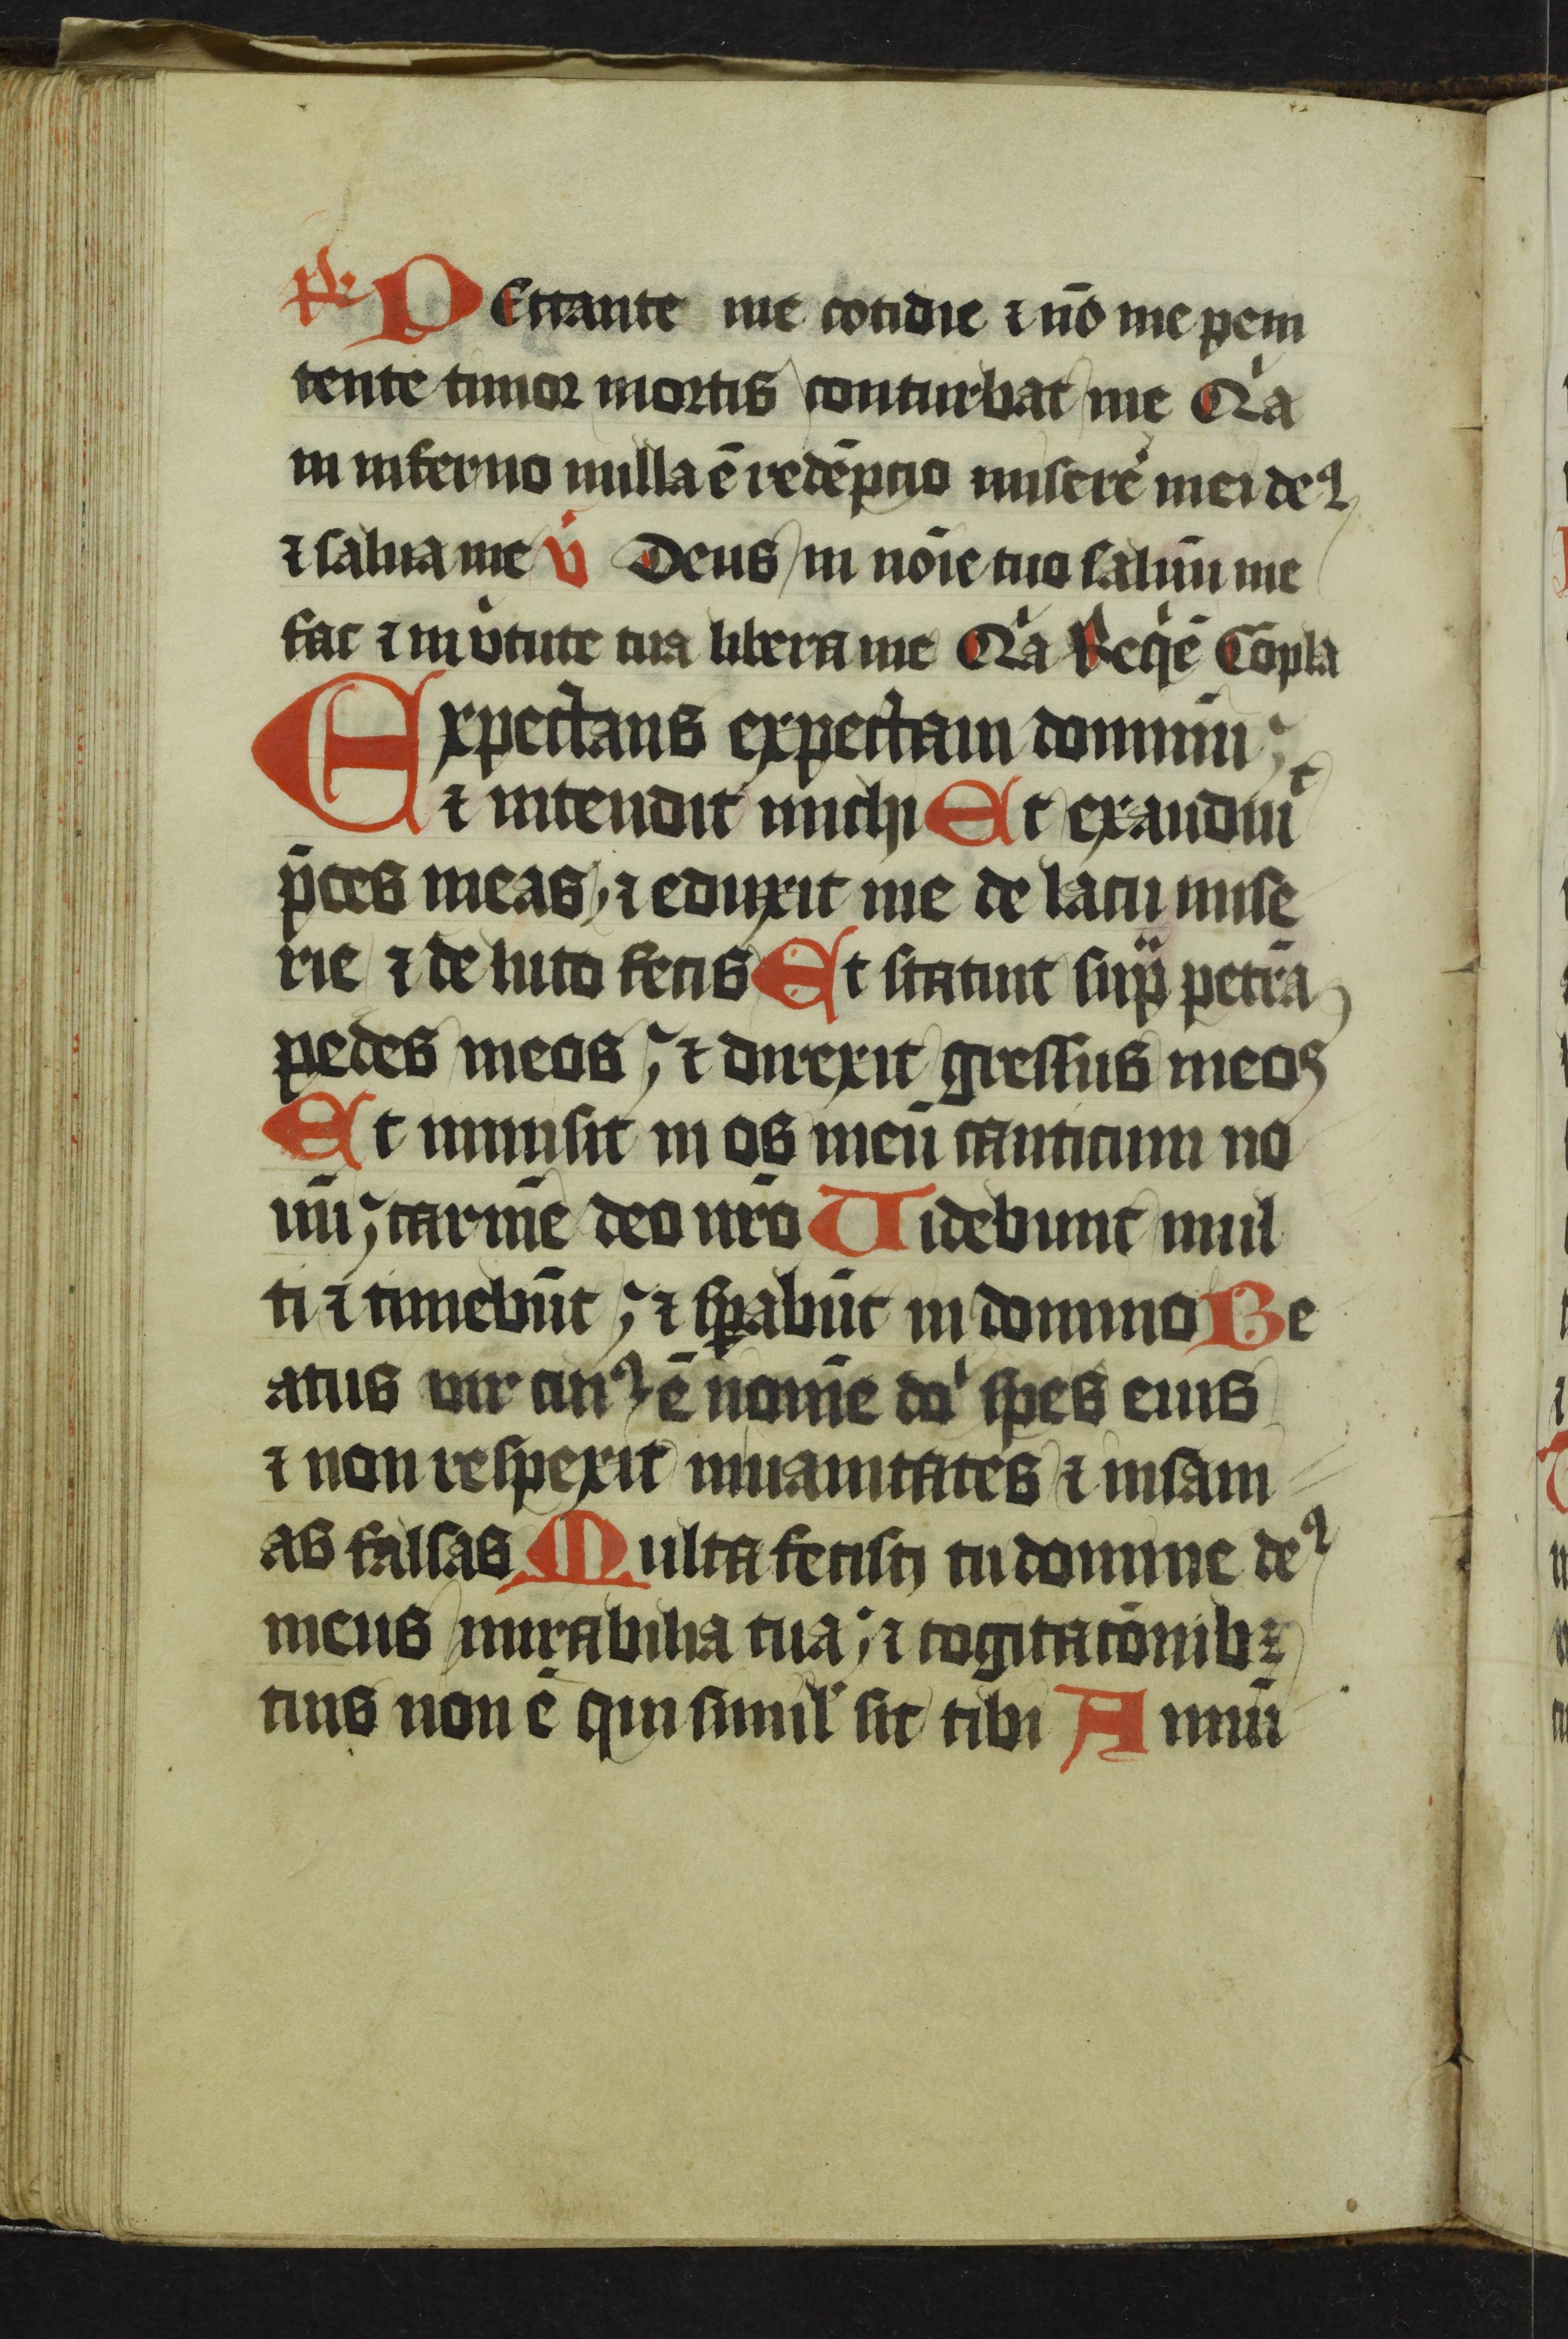 R̷ PEccante me cotidie ⁊ nō me peni
tente timor mortis conturbat me Qͥa
in inferno nulla ē redēpcio misere͛ mei deꝰ
⁊ salua me v̾ Deus in nōīe tuo saluū me
fac ⁊ in v̾tute tua libera me Qͥa Reqͥē Cōpla
Expectans expectaui dominū ;
⁊ intendit michi Et exaudiuit
p̄ces meas ; ⁊ eduxit me de lacu mise
rie ⁊ de luto fecis Et statuit suꝑ petrā
pedes meos ; ⁊ direxit gressus meos
Et inmisit in os meū canticum no
uū ; carmē deo nr̄o Uidebunt mul
ti ⁊ timebūt ; ⁊ sꝑabūt in domino Be
atus vir cuiꝰ ē nomē dōi spes eius
⁊ non respexit inuanitates ⁊ insani
as falsas Multa fecisti tu domine deꝰ
meus mirabilia tua ; ⁊ cogitacōnibꝫ
tuis non ē qui simil͛ sit tibi Annū